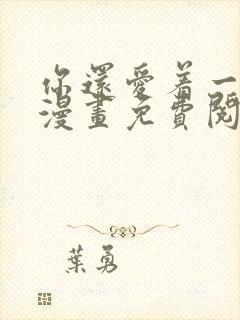 你還愛着一
漫畫免費閱
葉勇